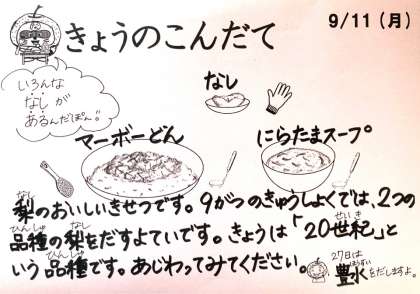 きょうのこんだて
9/11(月)
いろんな
なしが
あるんだぽん♪
なし
マーボーどん
にらたまスープ
梨のおいしいきせつです。9がつのきゅうしょくでは、2つの
品種の梨をだすよていです。きょうは「20世紀」と
いう品種です。あじわってみてください。
27日は
豊水をだしますよ。